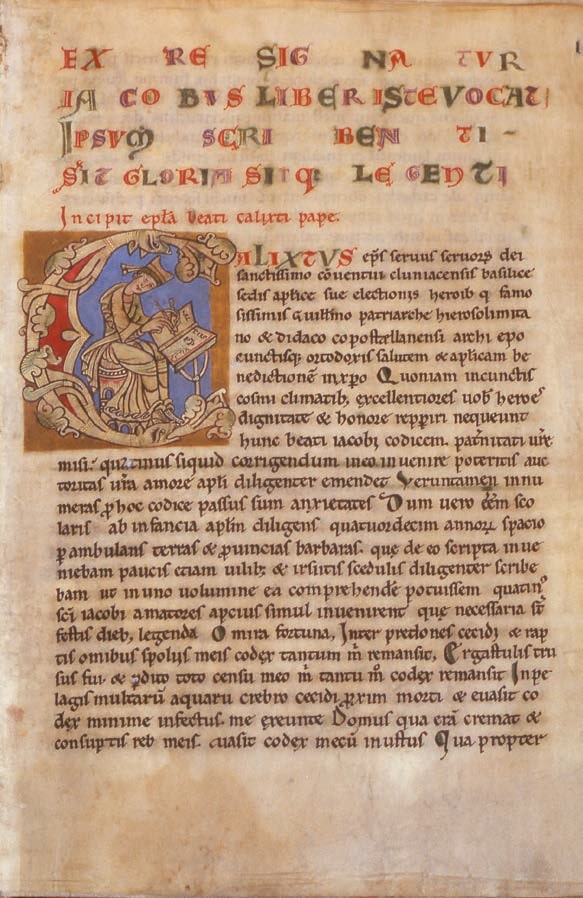 EX RE SIGNATUR
IACOBUS LIBER ISTE VOCAT
IPSUM SCRIBENTI-
SIT GLORIA SITQ: LEGENTI
Incipit epła beati calixti pape.
CALIXTUS eps seruus seruorꝝ dei
sanctissimo cōuentui cluniacensis basilice
sedis aplice sue electionis heroib q famo
sissimis guillmo patriarche hierosolimita
no & didaco copostellanensi archi epo
cunctisq; ortodoxis salutem & aplicam be
nedictionē in xpo Quoniam in cunctis
cosmi climatib, excellentiores uob heroes
dignitate & honore repperiri nequeunt
hunc beati iacobi codicem. pat̄nitati ur̄e
misi. quatinus siquid corrigendum in eo inuenire poteritis auc
toritas ur̄a amore apli diligenter emendet Veruntamen innu
meras ꝓ hoc codice passus sum anxietates Dum uero eēm sco
laris ab infancia aplm diligens quatuordecim annorꝝ spacio
ꝑambulans terras & ꝓuincias barbaras. que de eo scripta inue
niebam paucis etiam uilib; & irsutis scedulis diligenter scribe
bam ut in uno uolumine ea comprehende potuissem quatin⁹
sc̄i iacobi amatores apcius simul inuenirent que necessaria st̄
festis dieb, legenda O mira fortuna, Inter predones cecidi & rap
tis omibus spoliis meis codex tantum m̄ remansit, Ergastulis tru
sus fui. & ꝑdito toto censu meo m̄ tantu m̄ codex remansit In pe
lagis multarū aquaru crebro cecidi ꝓxim morti & euasit co
dex minime infectus. me exeunte Domus qua erā cremat̄ &
consuptis reb meis. euasit codex mecū inustus Qua propter